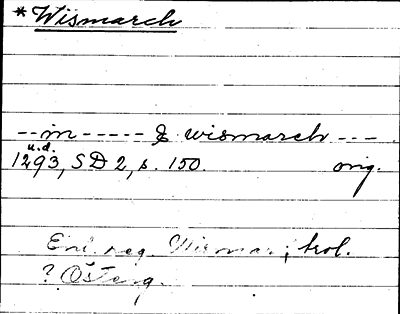 *Wismarch
--in-----& wismarch---
u.d.
1293, SD 2, s. 150. orig.
Enl. reg. Wismar; trol.
? Österg.